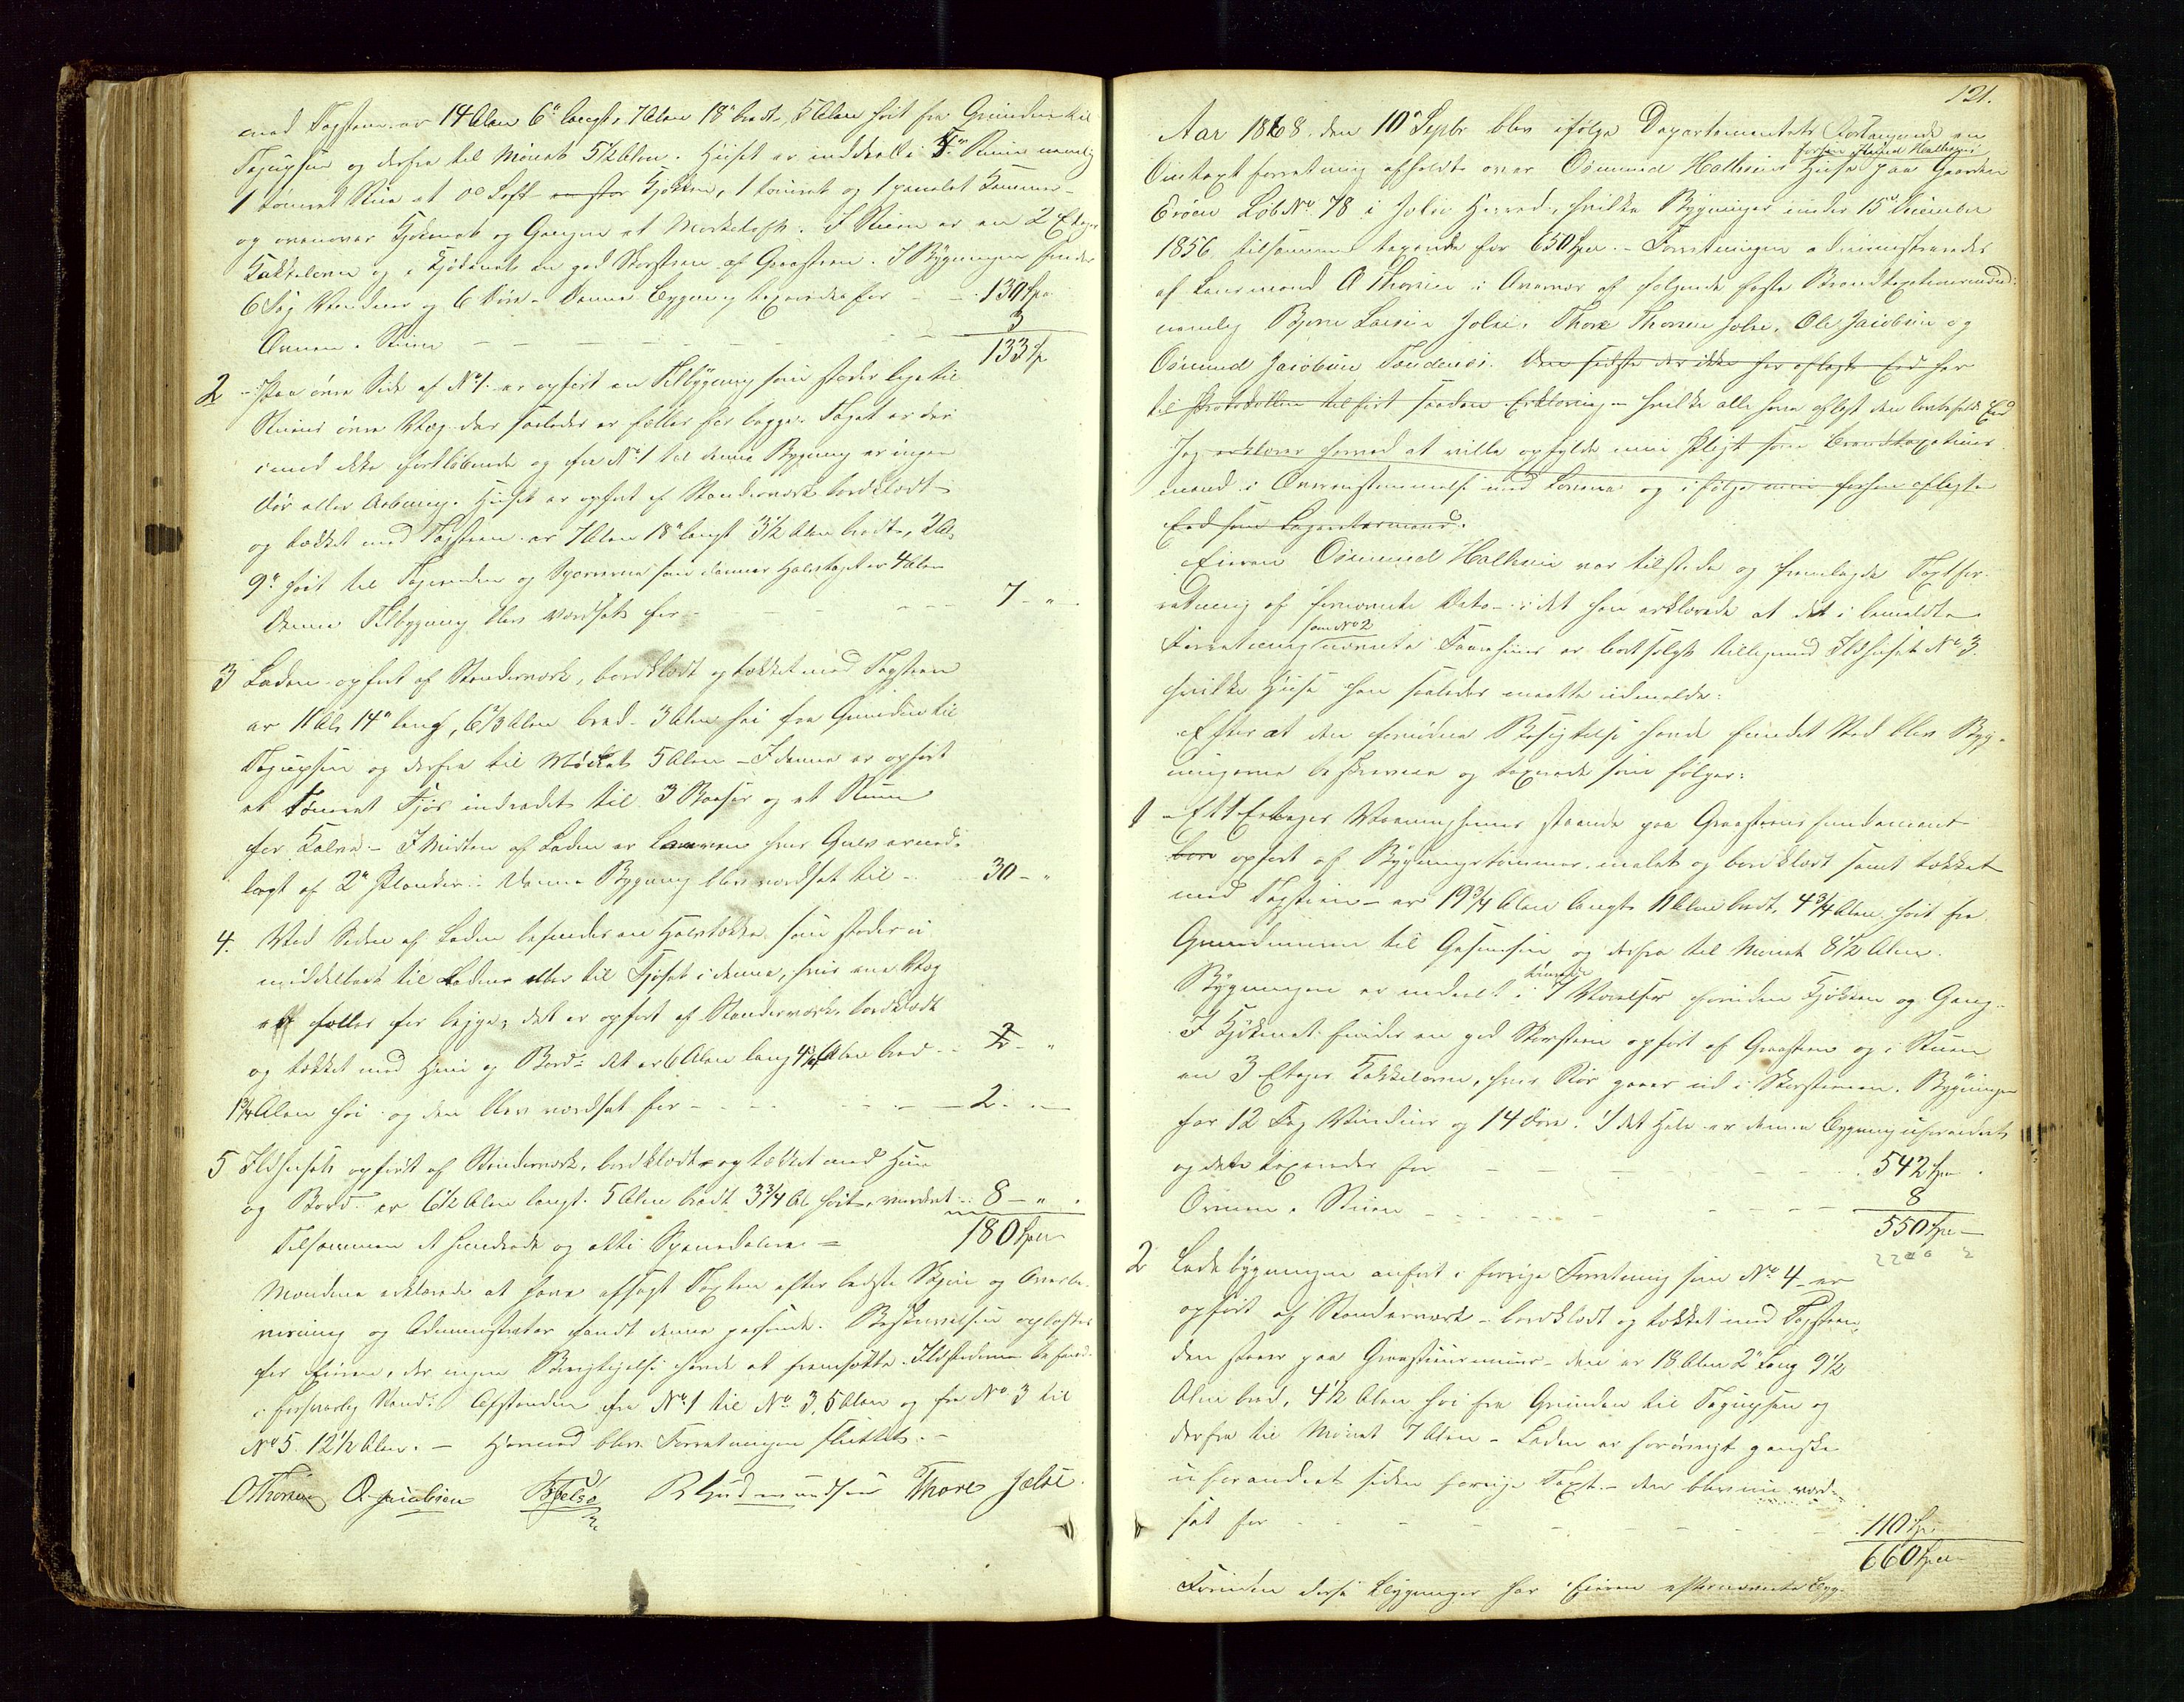 med Tagsteen er 14 Alen 6" langt, 7 Alen 18" bredt, 5 Alen høit fra Grunden til
Tagupsen og derfra til Mønet 5½ Alen. Huset er inddeelt i 5 Rum nemlig
1 tømret Stue et do Loft Kjøkken, 1 tømret og 1 panelet Kammer
og ovenover Kjøkenet og Gangen et Mørkeloft. I Stuen er en 2 Etages
Kakkelovn og i Kjøkenet en god Skorsteen af Graasteen. I Bygningen findes
6 Fag Vinduer og 6 Døre. Denne Bygning taxeredes for - - 130 Spd
Ovnen i Stuen - - - - 3
133 Sp
2 Paa øvre Side af No 1 er opført en Tilbygning som støder lige til
Stuens øvre Væg der saaledes er fælles for begge. Taget er der
imod ikke fortløbende og fra No 1 til denne Bygning er ingen
Dør eller Aabning. Huset er opført af Stenderværk bordklædt
og tækket med Tagsteen er 7 Alen 18" langt 3½ Alen bredt, 2 Al.
9" høit til Tagrenden og Sperrerne som danner Halvtaget er 4 Alen
Denne Tilbygning blev værdsat for - - - 7 - "
3 Laden opført af Stenderværk, bordklædt og tækket med Tagsteen
er 11 Al. 14" lang, 6⅔ Alen bred 3 Alen høi fra Grunden til
Tagupsen og derfra til Mønet 5 Alen - I denne er opført
et tømret Fjøs indredet til 3 Baaser og et Rum
for Kalve - I Midten af Laden er Laaven hvis Gulv er ned-
lagt af 2" Planker. Denne Bygning blev værdsat til - 30 - "
4. Ved Siden af Laden befindes en Halvtække som støder u-
middelbart til Laden eller til Fjøset i denne, hvis ene Væg
er fælles for begge, det er opført af Stenderværk, bordklædt
og tækket med Hun og Bord. det er 6 Alen lang 4¼ Alen bred - 2 - "
1¾ Alen høi og den blev værdsat for - - - 2 - "
5 Ildhuset opført af Stenderværk, bordklædt og tækket med Hun
og Bord er 6½ Alen langt. 5 Alen bredt 3¾ Al. høit, vurderet 8 - "
Tilsammen Et hundrede og otti Speciedaler = 180 Spd
Mændene erklærede at have afsagt Taxten efter bedste Skjøn og Overbe-
viisning og Administrator fandt denne passende. Beskrivelsen oplæstes
for Eieren, der ingen Berigtigelse havde at fremsætte. Ildstederne befandtes
i forsvarlig Stand. Afstanden fra No 1 til No 3, 5 Alen og fra No 3 til
No 5. 12½ Alen. - Hermed blev Forretningen sluttet. -
OThorsen O. Jacobsen BJelsø Thore Jælse
121.
Aar 1868 den 10de Septbr blev ifølge Departementets Forlangende en
forhen Halsnes
Omtaxtforretning afholdt over Osmund Halsnes Huse paa Gaarden
Erøen Løb No 78 i Jelse Herred, hvilke Bygninger under 15de December
1856 tilsammen taxeredes for 650 Spd. - Forretningen administreredes
af Lensmand O Thorsen i Overvær af følgende faste Brandtaxationsmænd:
nemlig Bjørn Larsen Jelse, Thore Thorsen Jelse, Ole Jacobsen og
Osmund Jacobsen Tendenes. Den sidste der ikke har aflagt Eed har
til Protokollen tilført saadan Erklæring - hvilke alle have aflagt den lovbefalede Eed
Jeg erklærer herved at ville opfylde min Pligt som Brandtaxations
mand i Overensstemmelse med Lovene og i følge min forhen aflagte
Eed som Lagrettesmand.
Eieren Osmund Halsnes var tilstede og fremlagde Taxtfor-
retning af fornævnte Dato - idet han erklærede at det i bemeldte
som No 2
Forretning nævnte Faarehuus er bortsolgt tilligemed Ildhuset No 3.
hvilke Huse han saaledes maatte udmelde.
Efter at den fornødne Besigtelse havde fundet Sted blev Byg-
ningerne beskrevne og taxerede som følger:
1 Et 1 Etages Vaaningshuus staaende paa Graasteens fundament
opført af Bygningstømmer, malet og bordklædt samt tækket
med Tagsteen - er 19¾ Alen langt 11 Alen bredt, 4¾ Alen høit fra
Grundmuren til Gesimsen og derfra til Mønet 8½ Alen.
tømrede
Bygningen er inddeelt i 7 Værelser foruden Kjøkken og Gang.
I Kjøkenet findes en god Skorsteen opført af Graasteen og i Stuen
en 3 Etages Kakkelovn, hvis Rør gaaer ud i Skorstenen. Bygningen
har 12 Fag Vinduer og 14 Døre. I det Hele er denne Bygning uforandret
og dette taxeredes for - - - 542 Spd
Ovnen i Stuen - - - 8
550 Spd
2 Ladebygningen anført i forrige Forretning som No 4 er
opført af Stenderværk - bordklædt og tækket med Tagsteen,
den staar paa Graasteensmuur - den er 18 Alen 2" Lang 9½
Alen bred, 4½ Alen høi fra Grunden til Tagupsen og
derfra til Mønet 7 Alen - Laden er forøvrigt ganske
uforandret siden forrige Taxt. - den blev nu værd-
sat for - - - 110 Spd
660 Spd
Foruden disse Bygninger har Eieren efternævnte Byg-